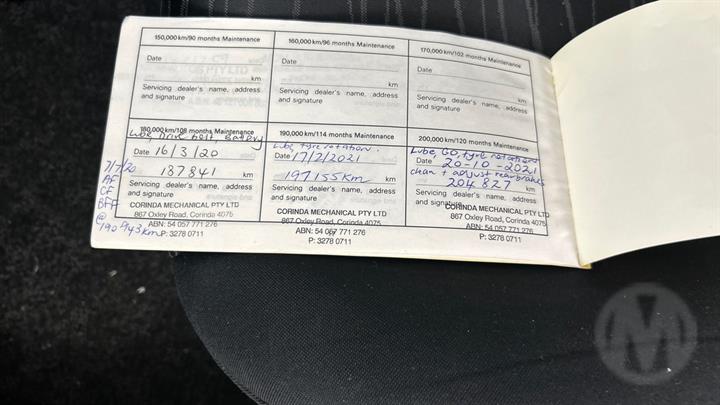 150,000 km/90 months Maintenance
Date
km
Servicing dealer's name, address
and signature
160,000 km/96 months Maintenance
Date
km
Servicing dealer's name, address
and signature
170,000 km/102 months Maintenance
Date
km
Servicing dealer's name, address
and signature
180,000 km/108 months Maintenance
Lube, Drive belt, Battery
Date 16/3/20
187841 km
Servicing dealer's name, address
and signature
CORINDA MECHANICAL PTY LTD
867 Oxley Road, Corinda 4075
ABN: 54 057 771 276
P: 3278 0711
7/7/20
AF
CF
BFF
@
190943km
190,000 km/114 months Maintenance
Lube, tyre rotation.
Date 17/2/2021
197155km km
Servicing dealer's name, address
and signature
CORINDA MECHANICAL PTY LTD
867 Oxley Road, Corinda 4075
ABN: 54 057 771 276
P: 3278 0711
200,000 km/120 months Maintenance
Lube GO, tyre rotations
Date 20-10-2021
clean + adjust rear brakes
204827 km
Servicing dealer's name, address
and signature
CORINDA MECHANICAL PTY LTD
867 Oxley Road, Corinda 4075
ABN: 54 057 771 276
P: 3278 0711
M